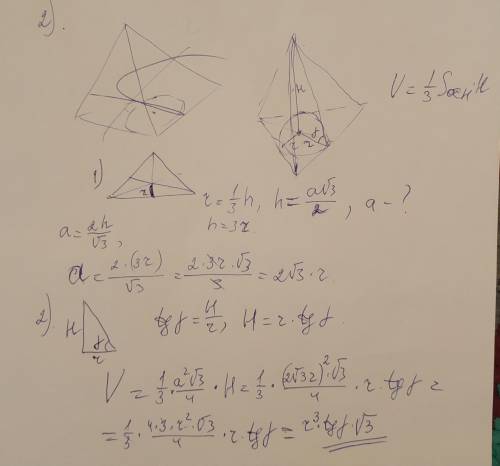 2).
H
γ
r r
V = 1/3 Sосн·H
1)
r
r = 1/3 h, h = a√3/2, a - ?
h = 3r
a = 2h/√3,
a = 2·(3r)/√3 = 2·3r·√3/3 = 2√3·r
2).
H
γ
r
tg γ = H/r, H = r·tg γ.
V = 1/3·a²√3/4·H = 1/3·(2√3r)²·√3/4·r·tg γ =
= 1/3·4·3·r²·√3/4·r·tg γ = r³·tg γ·√3